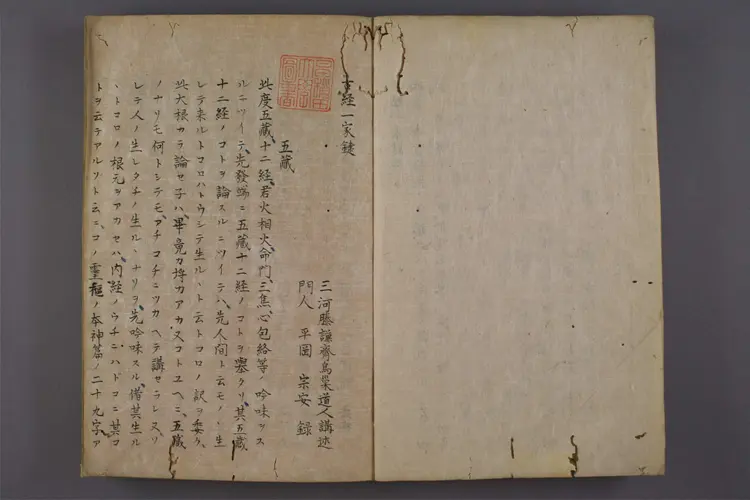 古経一家鍵
三河藤謙斎烏巣道人講述
門人 平岡宗安録
五蔵
此度五蔵、十二経、君火相火、命門、三焦、心包絡等ノ吟味ヲス
ルニツイテ、先發端ニ五蔵十二経ノコトヲ塞クリ、其五蔵
十二経ノコトヲ論スルニツイテハ、先人間ト云モノノ生
レテ来ルトコロハトウシテ生ルヽト云トコロノ訳ヲ委ク、
此大根カラ論セ子ハ、畢竟カ埒カアカヌコトユヘニ、五蔵
ノナリモ何トシテモアチコチニツカヘテ講セラレヌソ
レテ人ノ生レタチノ生ルヽナリヲ先吟味スル、借其生ル
ヽトコロノ根元ヲアカセハ、内経ノウチニハドコニ其コ
トヲ云テアルソト云ニ、コノ霊樞ノ本神篇ノ二十九字、ア